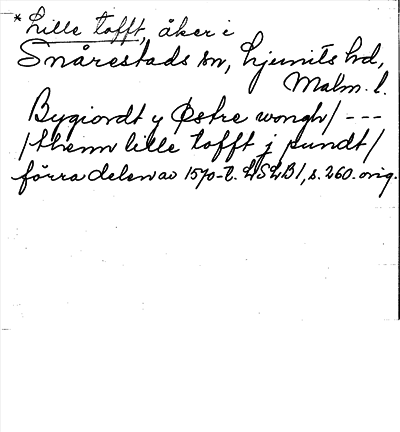 * Lille tofft, åker i
Snårestads sn, Ljunits hd,
Malm. l.
Bygiordt y Østre wongh/ ---
/thenn lille tofft j pundt/
förra delen av 1570-t. LSLB1, s. 260. orig.